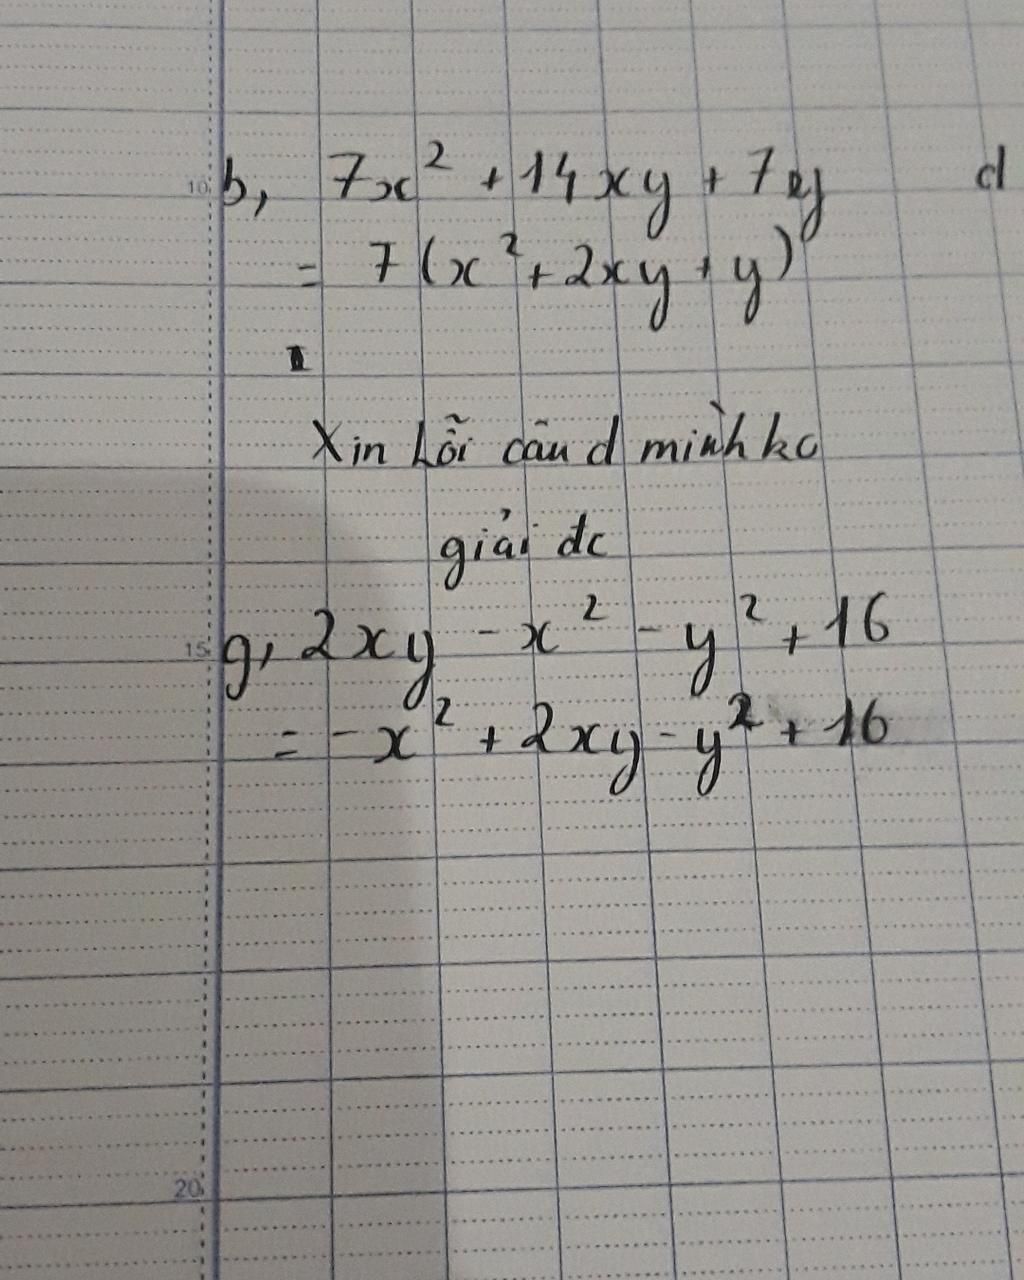 10 b, 7x² + 14xy + 7y d
= 7(x² + 2xy + y)
Xin Lỗi câu d mình ko
giải đc
15 g, 2xy - x² - y² + 16
= -x² + 2xy - y² + 16
20